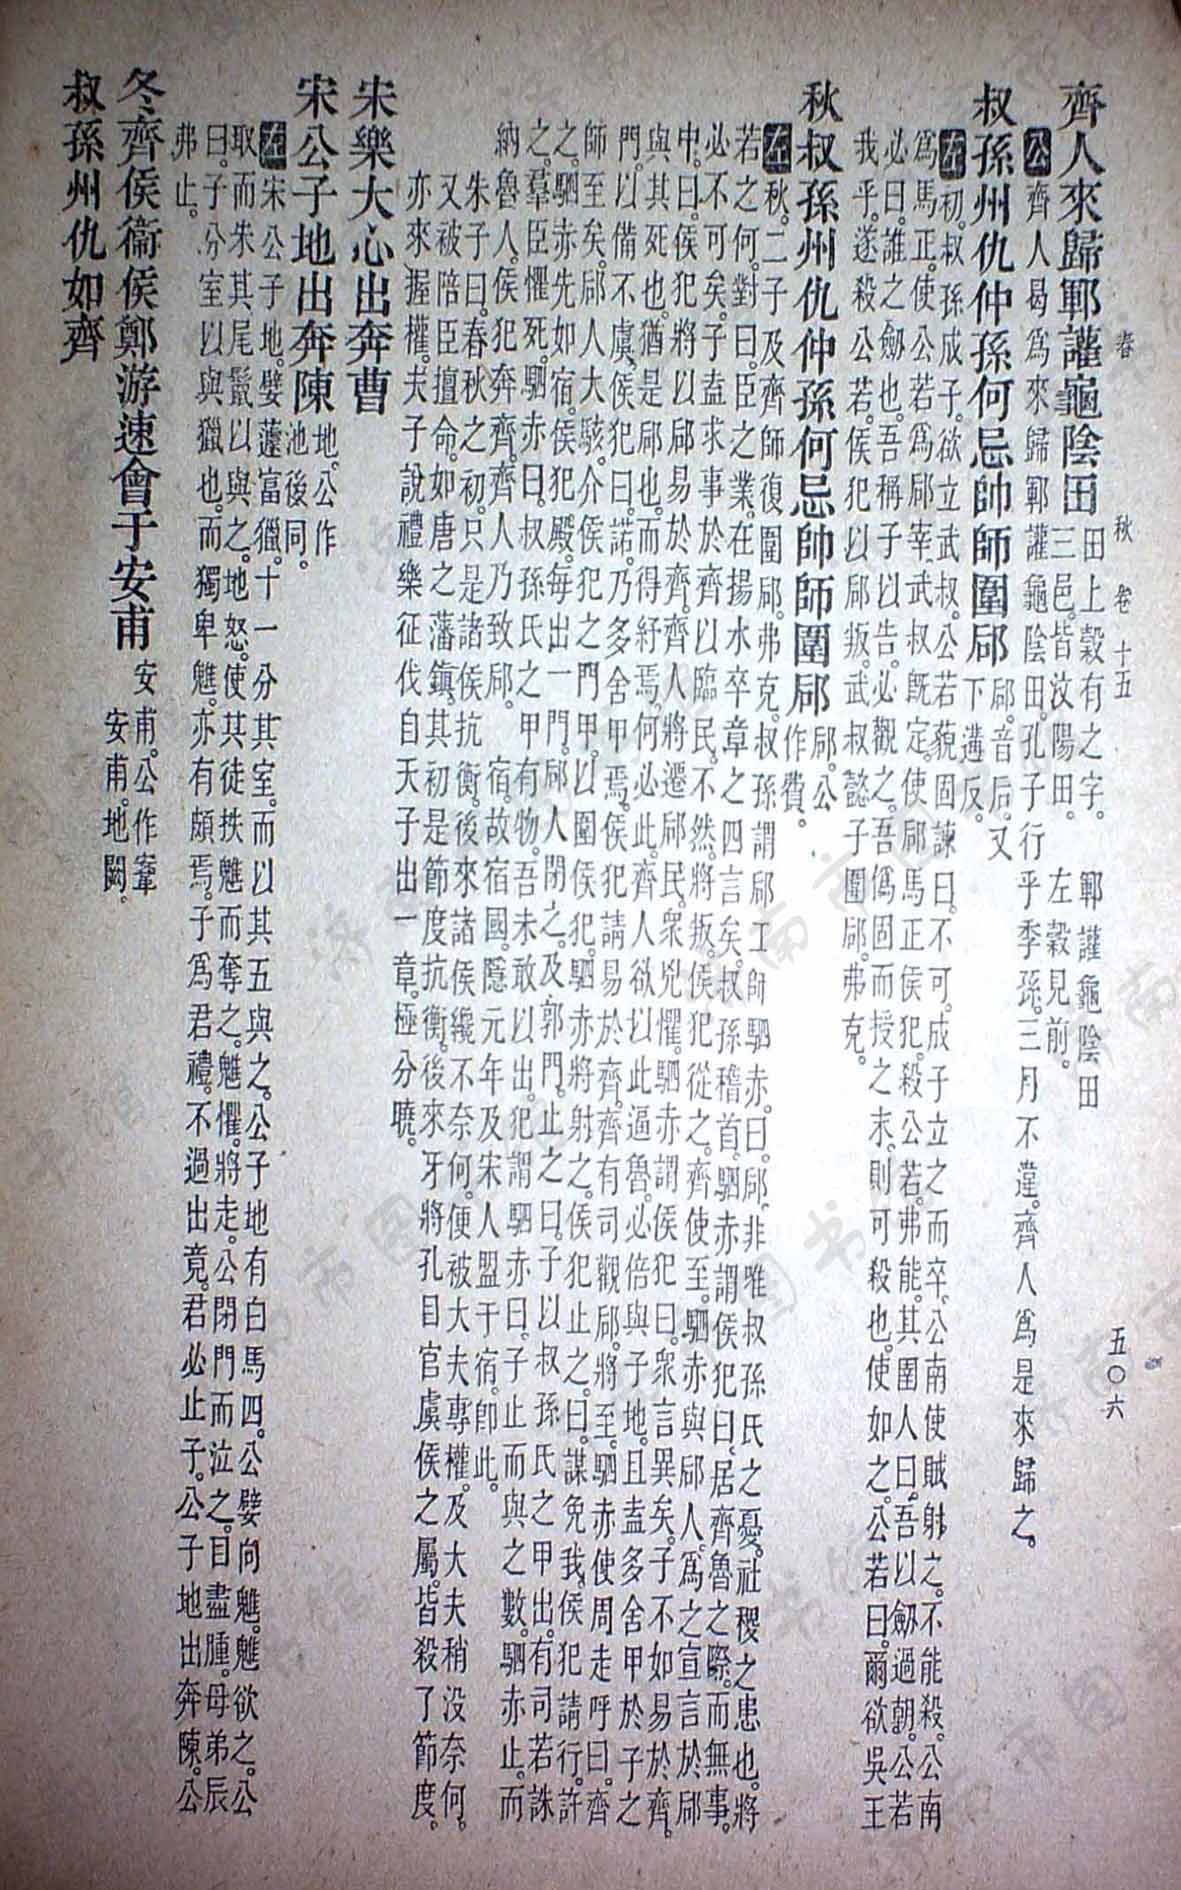 春秋 卷十五 五〇六
齊人來歸鄆讙龜陰田 田上穀有之字。 鄆讙龜陰田
三邑。皆汶陽田。 左穀見前。
公 齊人曷爲來歸鄆讙龜陰田。孔子行乎季孫。三月不違。齊人爲是來歸之。
叔孫州仇仲孫何忌帥師圍郈 郈。音后。又
下遘反。
左 初。叔孫成子。欲立武叔。公若藐固諫曰。不可。成子立之而卒。公南使賊射之。不能殺。公南
爲馬正。使公若爲郈宰。武叔既定。使郈馬正侯犯。殺公若。弗能。其圉人曰。吾以劒過朝。公若
必曰。誰之劒也。吾稱子以告。必觀之。吾僞固而授之末。則可殺也。使如之。公若曰。爾欲吳王
我乎。遂殺公若。侯犯以郈叛。武叔懿子圍郈。弗克。
秋叔孫州仇仲孫何忌帥師圍郈 郈。公
作費。
左 秋。二子及齊師復圍郈。弗克。叔孫謂郈工師駟赤。曰。郈。非唯叔孫氏之憂。社稷之患也。將
若之何。對曰。臣之業。在揚水卒章之四言矣。叔孫稽首。駟赤謂侯犯曰。居齊魯之際。而無事。
必不可矣。子盍求事於齊。以臨民。不然。將叛。侯犯從之。齊使至。駟赤與郈人。爲之宣言於郈
中。曰。侯犯將以郈易於齊。齊人將遷郈民。衆兇懼。駟赤謂侯犯曰。衆言異矣。子不如易於齊。
與其死也。猶是郈也。而得紓焉。何必此。齊人欲以此逼魯。必倍與子地。且盍多舍甲於子之
門。以備不虞。侯犯曰。諾。乃多舍甲焉。侯犯請易於齊。齊有司觀郈。將至。駟赤使周走呼曰。齊
師至矣。郈人大駭。介侯犯之門甲。以圍侯犯。駟赤將射之。侯犯止之。曰。謀免我。侯犯請行。許
之。駟赤先如宿。侯犯殿。每出一門。郈人閉之。及郭門。止之曰。子以叔孫氏之甲出。有司若誅
之。羣臣懼死。駟赤曰。叔孫氏之甲有物。吾未敢以出。犯謂駟赤曰。子止而與之數。駟赤止。而
納魯人。侯犯奔齊。齊人乃致郈。 宿。故宿國。隱元年。及宋人盟于宿。卽此。
朱子曰。春秋之初。只是諸侯抗衡。後來諸侯纔不奈何。便被大夫專權。及大夫稍没奈何。
又被陪臣擅命。如唐之藩鎮。其初是節度抗衡。後來牙將孔目官虞侯之屬。皆殺了節度。
亦來握權。夫子說禮樂征伐自天子出一章。極分曉。
宋樂大心出奔曹
宋公子地出奔陳 地。公作
池。後同。
左 宋公子地。嬖蘧富獵。十一分其室。而以其五與之。公子地有白馬四。公嬖向魋。魋欲之。公
取而朱其尾鬣以與之。地怒。使其徒抶魋而奪之。魋懼。將走。公閉門而泣之。目盡腫。母弟辰
曰。子分室以與獵也。而獨卑魋。亦有頗焉。子爲君禮。不過出竟。君必止子。公子地出奔陳。公
弗止。
冬齊侯衞侯鄭游速會于安甫 安甫。公作鞌
安甫。地闕。
叔孫州仇如齊